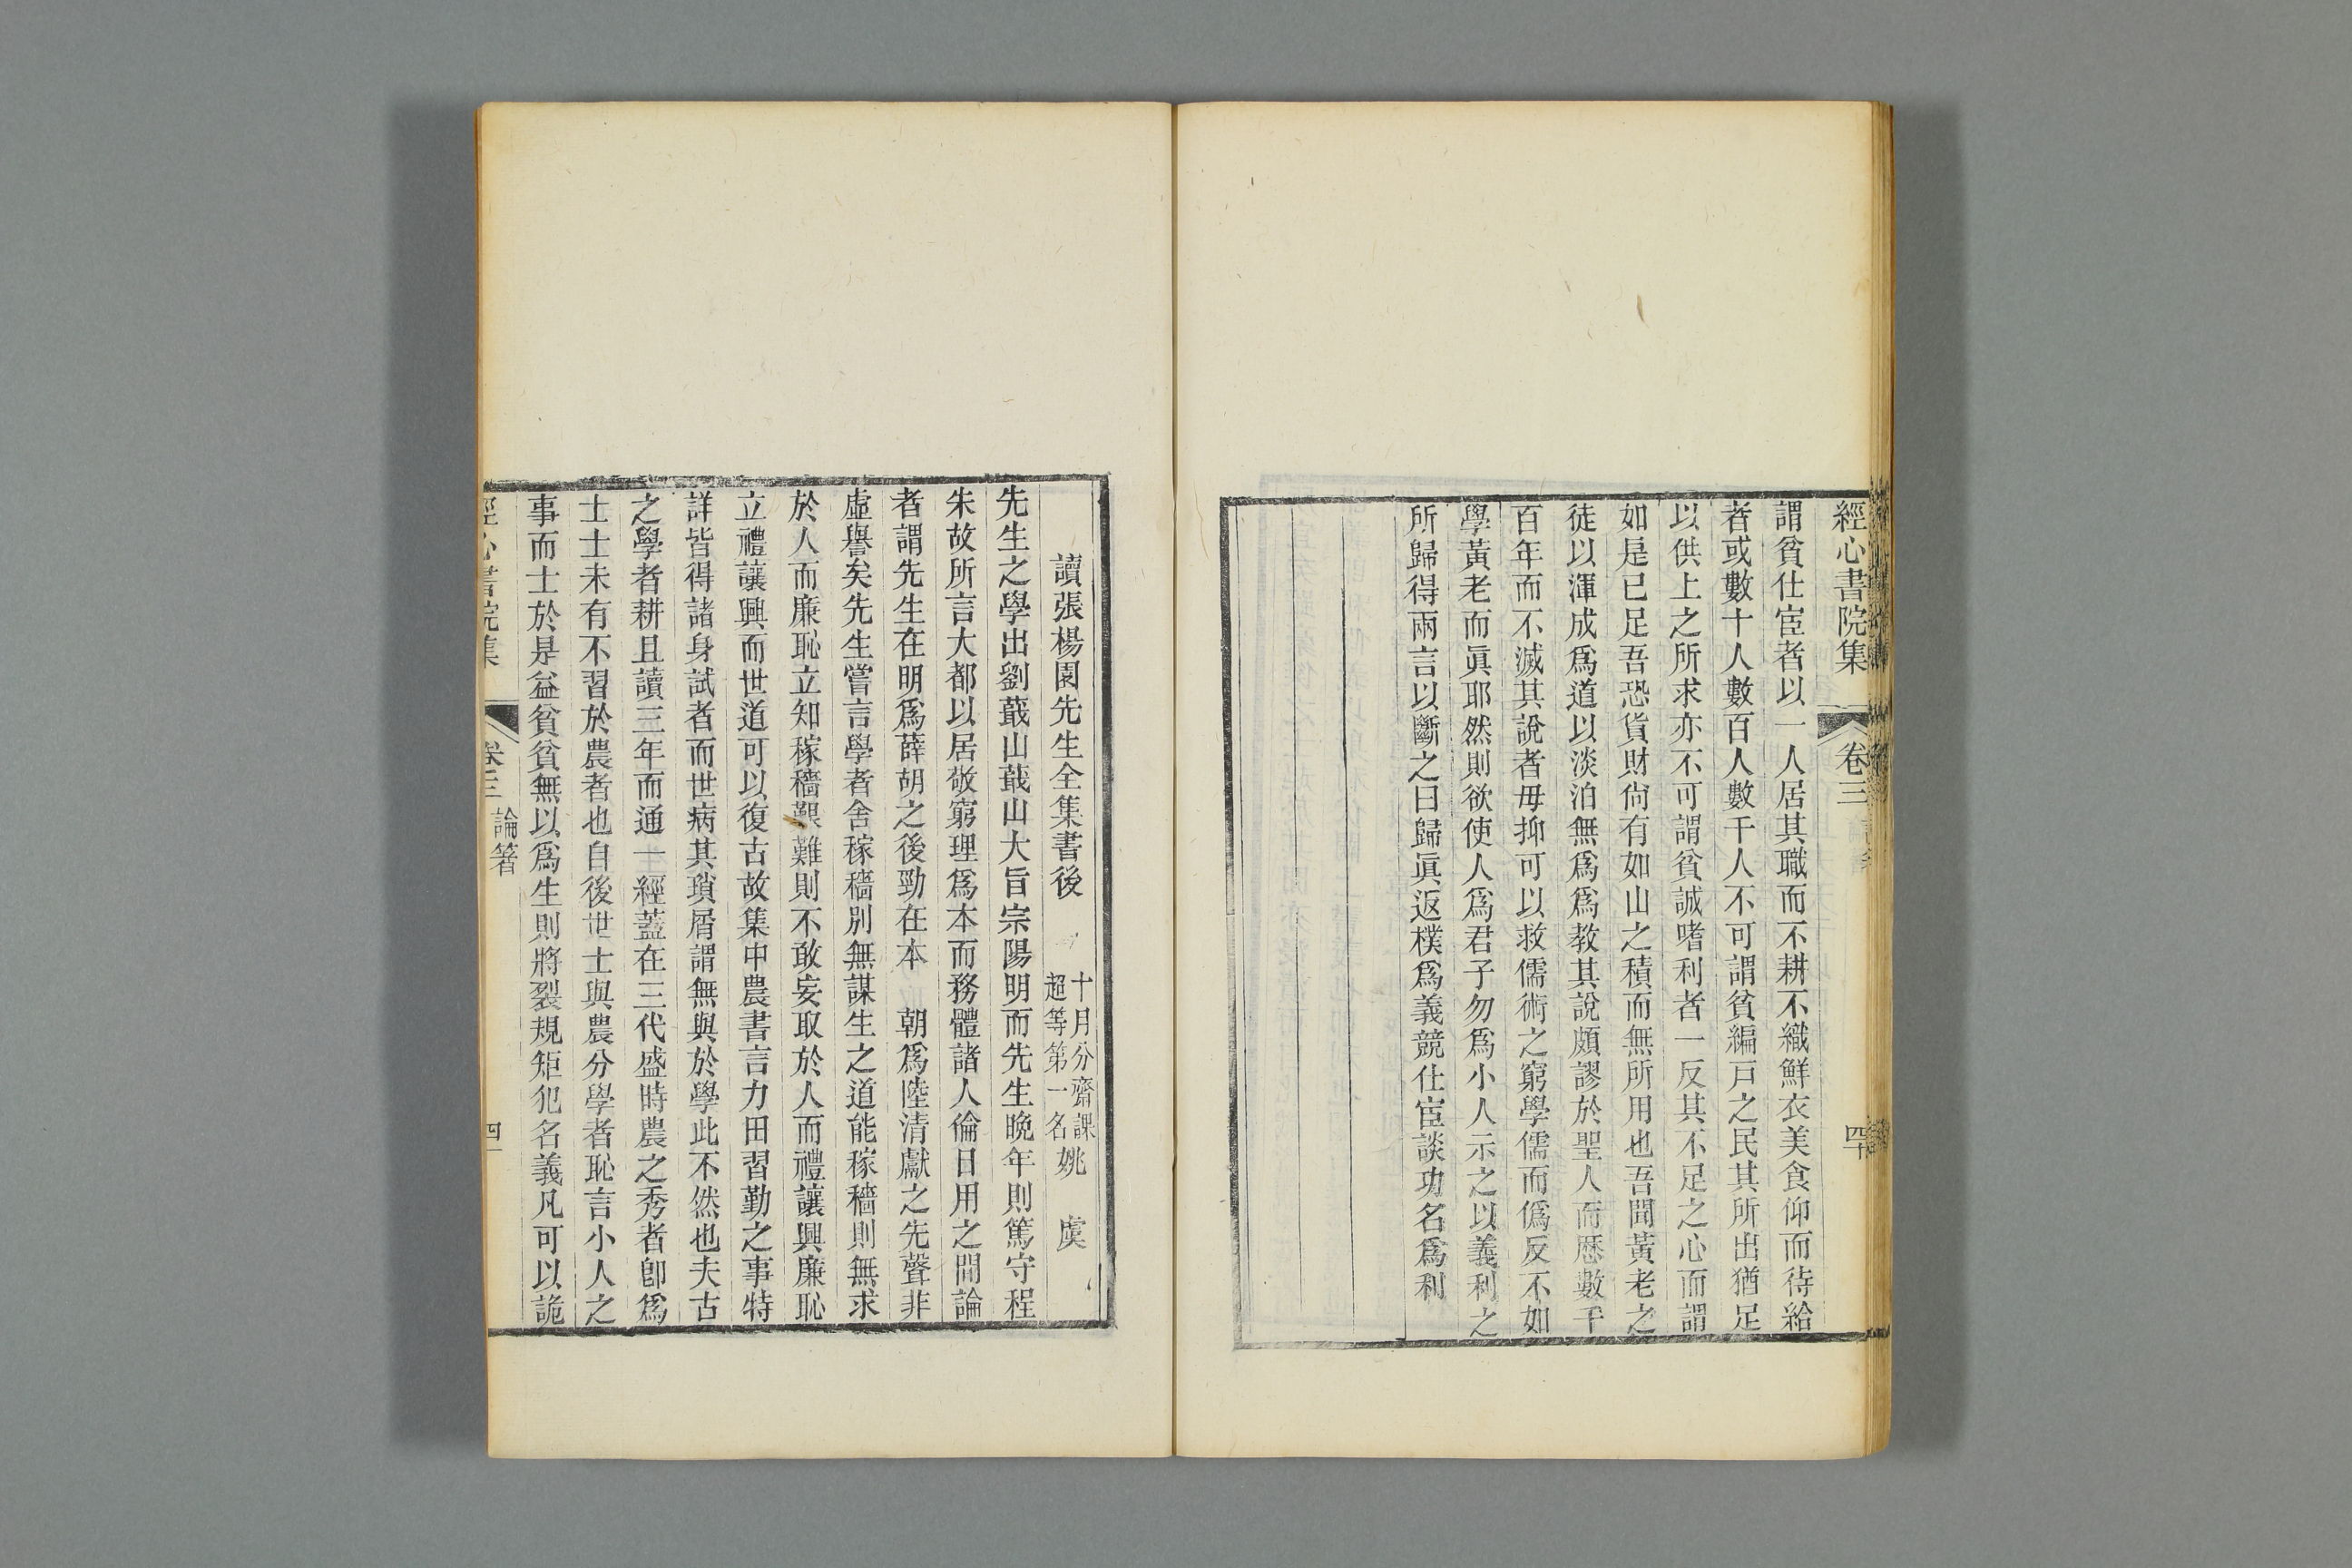 經心書院集 卷三 四十
謂貧仕宦者以一人居其職而不耕不織鮮衣美食仰而待給
者或數十人數百人數千人不可謂貧編戸之民其所出猶足
以供上之所求亦不可謂貧誠嗜利者一反其不足之心而謂
如是已足吾恐貨財尙有如山之積而無所用也吾聞黃老之
徒以渾成爲道以淡泊無爲爲教其說頗謬於聖人而歷數千
百年而不滅其說者毋抑可以救儒術之窮學儒而僞反不如
學黃老而眞耶然則欲使人爲君子勿爲小人示之以義利之
所歸得兩言以斷之曰歸眞返樸爲義競仕宦談功名爲利
讀張楊園先生全集書後 十月分齋課 超等第一名 姚 虞
先生之學出劉蕺山蕺山大旨宗陽明而先生晩年則篤守程
朱故所言大都以居敬窮理爲本而務體諸人倫日用之閒論
者謂先生在明爲薛胡之後勁在本 朝爲陸清獻之先聲非
虛譽矣先生嘗言學者舍稼穡別無謀生之道能稼穡則無求
於人而廉恥立知稼穡艱難則不敢妄取於人而禮讓興廉恥
立禮讓興而世道可以復古故集中農書言力田習勤之事特
詳皆得諸身試者而世病其瑣屑謂無與於學此不然也夫古
之學者耕且讀三年而通一經蓋在三代盛時農之秀者卽爲
士士未有不習於農者也自後世士與農分學者恥言小人之
事而士於是益貧貧無以爲生則將裂規矩犯名義凡可以詭
經心書院集 卷三 論箸 四一